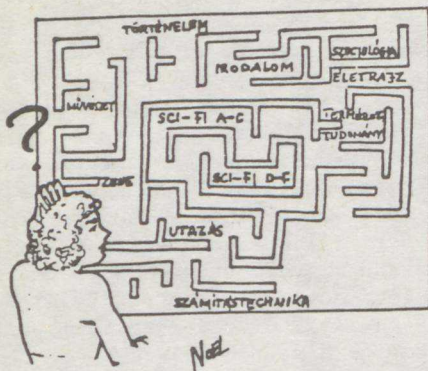 TÖRTÉNELEM
IRODALOM
SZOCIOLÓGIA
ÉLETRAJZ
MŰVÉSZT
SCI-FI A-C
TERMÉSZET
TUDOMÁNY
SCI-FI D-F
ZENE
UTAZÁS
SZÁMÍTÁSTECHNIKA
NOEL
?